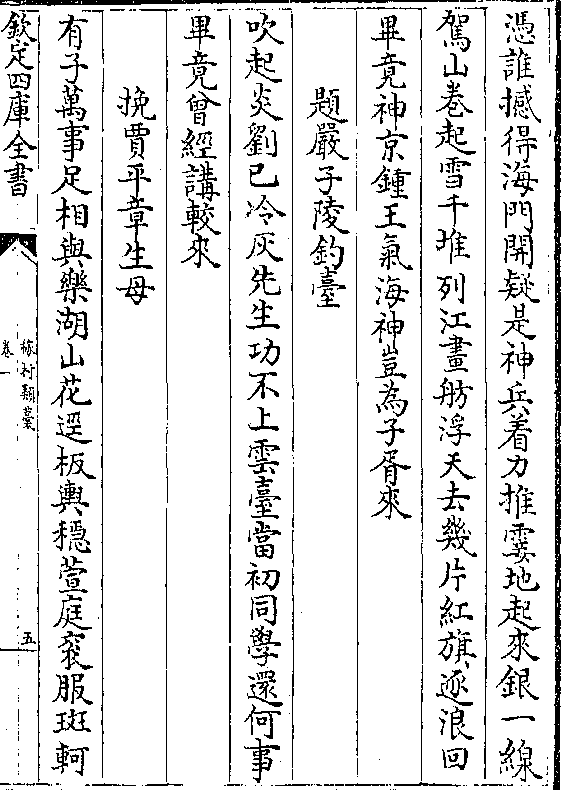 憑誰撼得海門開疑是神兵着力推霎地起來銀一線
駕山巻起雪千堆列江畫舫浮天去幾片紅旗逐浪回
畢竟神京鍾王氣海神豈為子胥來
題嚴子陵釣臺
吹起炎劉已冷灰先生功不上雲臺當初同學還何事
畢竟曾經講較來
挽賈平章生母
有子萬事足相與樂湖山花逕板輿穩萱庭衮服斑軻
欽定四庫全書
稼村類藁
卷一
五